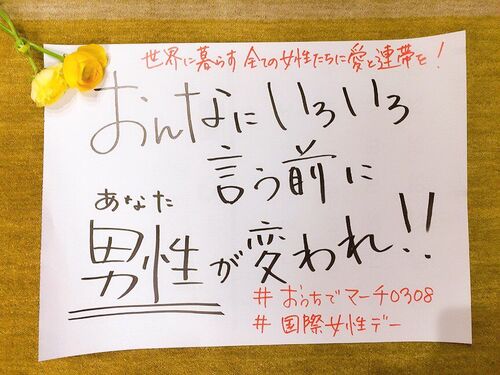 世界に暮らす全ての女性たちに愛と連帯を！
おんなにいろいろ
言う前に
あなた
男性が変われ!!
#おうちでマーチ0308
#国際女性デー